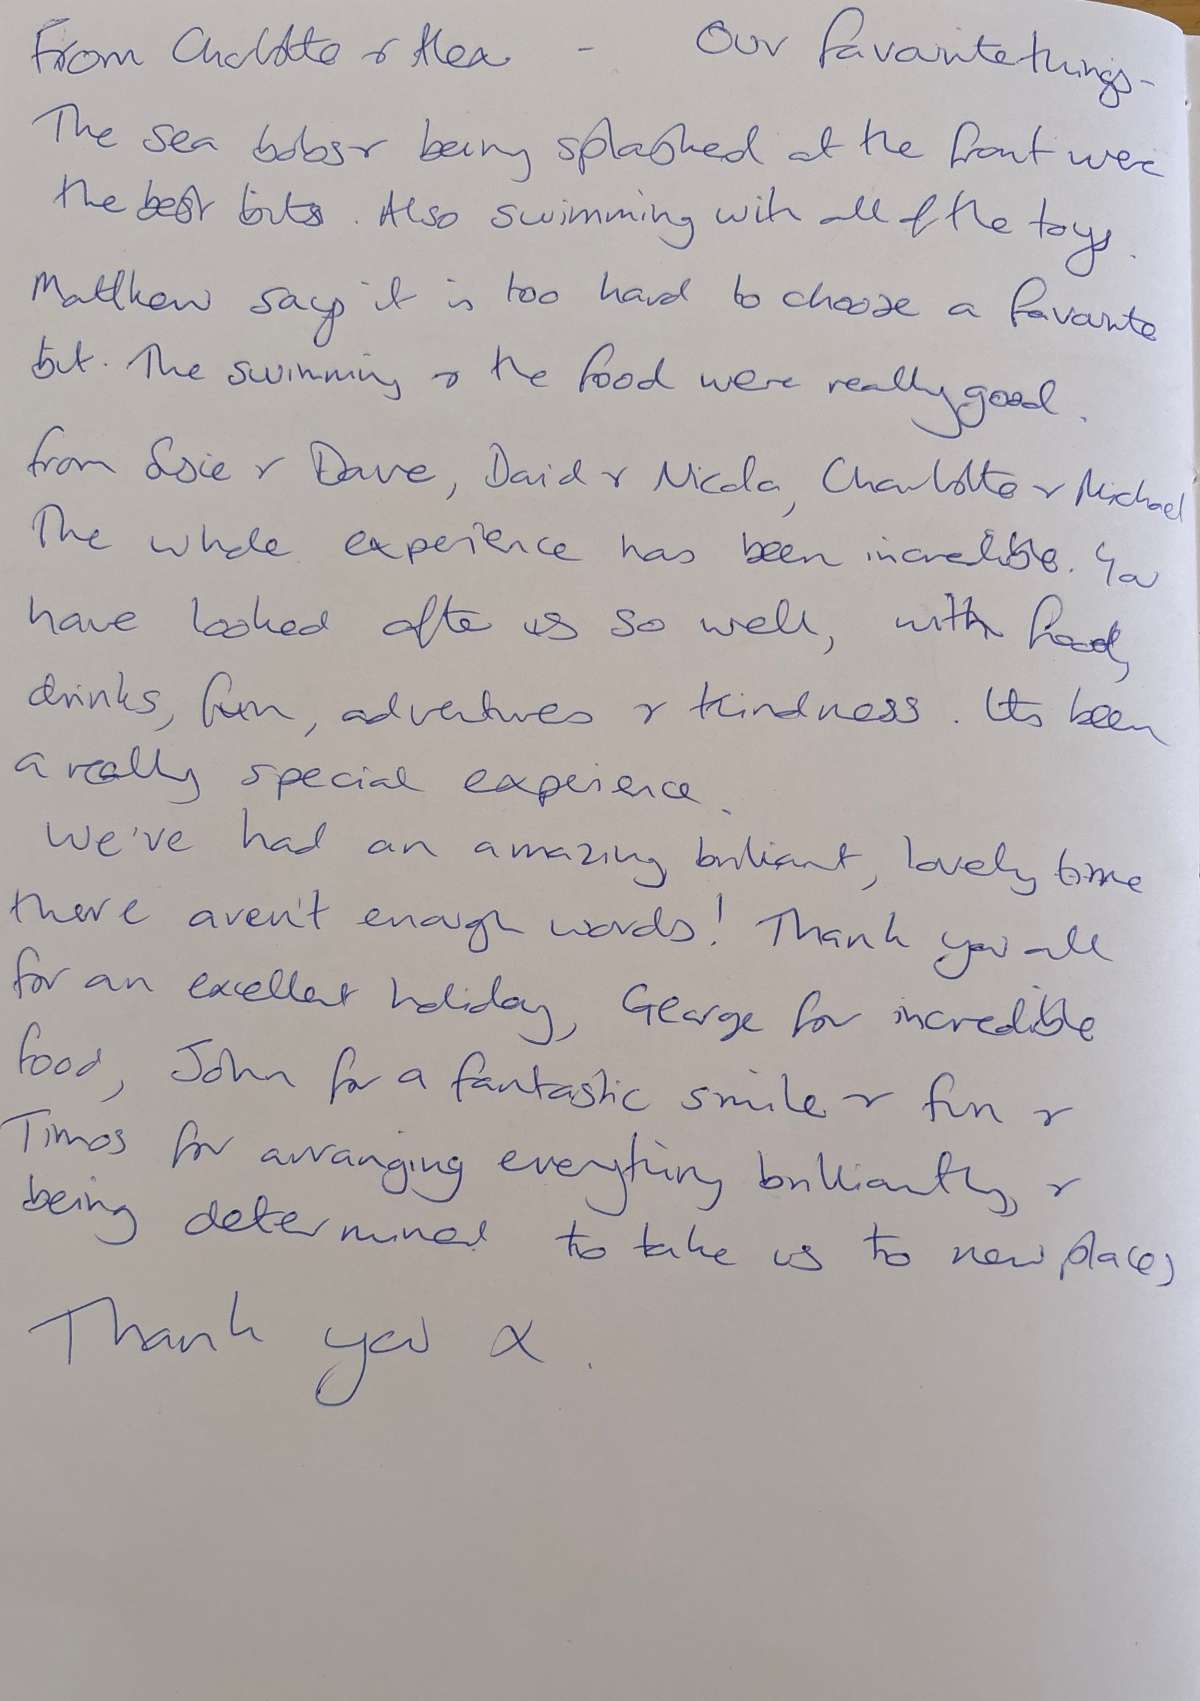 From Charlotte & Alex - Our favourite things -
The sea bobs & being splashed at the front were
the best bits. Also swimming with all of the toys.
Matthew says it is too hard to choose a favourite
bit. The swimming & the food were really good.
from Susie & Dave, David & Nicola, Charlotte & Michael
The whole experience has been incredible. You
have looked after us so well, with food,
drinks, fun, adventures & kindness. Its been
a really special experience.
We've had an amazing brilliant, lovely time
there aren't enough words! Thank you all
for an excellent holiday, George for incredible
food, John for a fantastic smile & fun &
Timos for arranging everything brilliantly, &
being determined to take us to new places
Thank you x.